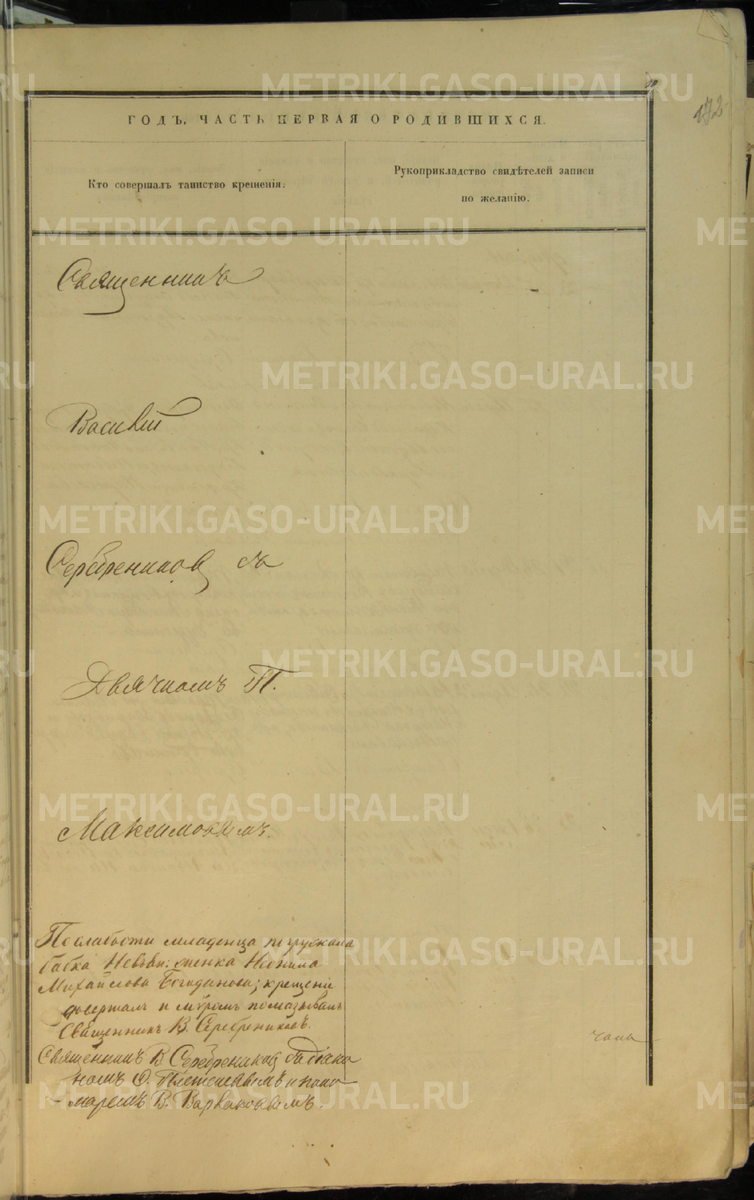 172
ГОДЪ, ЧАСТЬ ПЕРВАЯ О РОДИВШИХСЯ.
Кто совершалъ таинство крещенія.
Рукоприкладство свидѣтелей записи
по желанію.
Священникъ
Василій
Серебрениковъ съ
Дьячкомъ П.
Максимовымъ.
По слабости младенца погружала
бабка Невьян: женка Неонила
Михайлова Богданова; крещеніе
довершалъ и мѵромъ помазывалъ
Священникъ В. Серебрениковъ.
Священникъ В. Серебрениковъ съ діако
номъ О. и поно
маремъ В.
METRIKI.GASO-URAL.RU